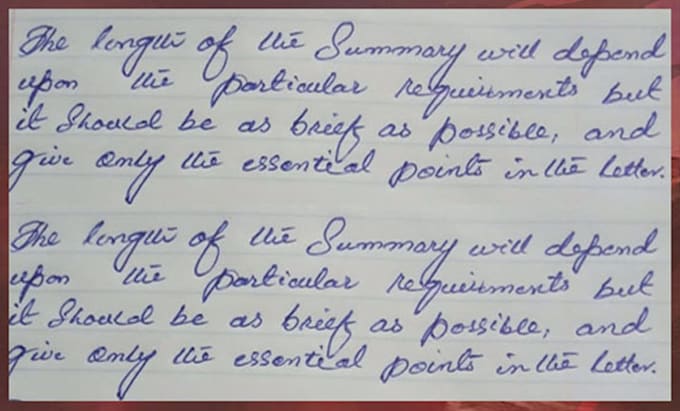 The length of the Summary will depend
upon the particular requirements but
it Should be as brief as possible, and
give only the essential points in the letter.
The length of the Summary will depend
upon the particular requirements but
it Should be as brief as possible, and
give only the essential points in the letter.